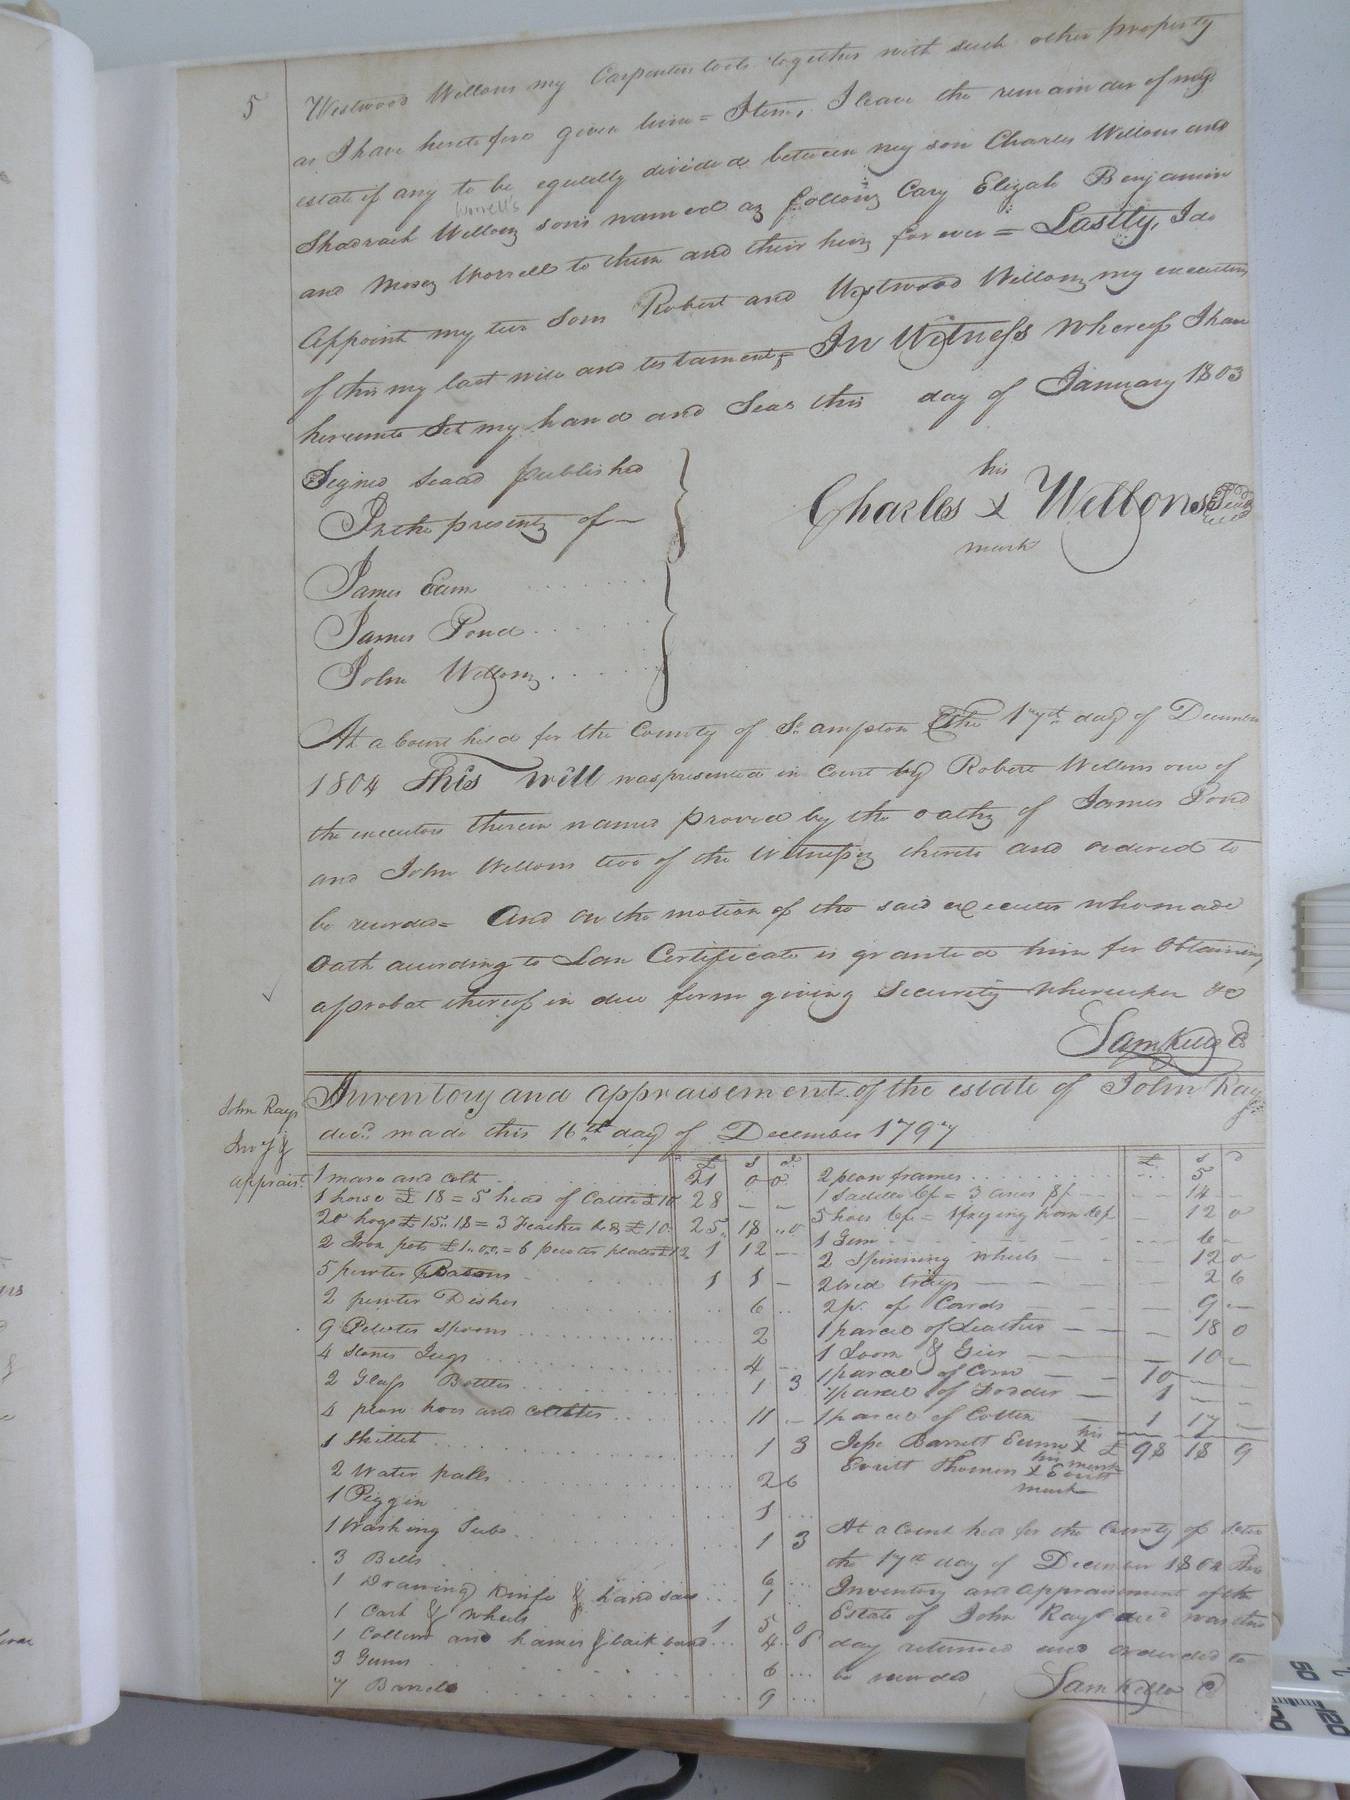 5
Westwood Wellons my Carpenters tools together with such other property
as I have heretofore given him = Item, I leave the remainder of my
estate if any to be equally divided between my son Charles Wellons and
Worrell's
Shadrach Wellons sons named as follows Cary Elizah Benjamin
and Moses Worrell to them and their heirs forever = Lastly, I do
Appoint my two sons Robert and Westwood Wellons my executors
of this my last will and testament, In Witness whereof I have
hereunto Set my hand and Seal this day of January 1803
Signed seald published
In the presents of —
James Exum
James Pond
John Wellons
his
Charles x Wellons Seal
mark
At a Court held for the County of So. ampton the 17th day of December
1804 This will was presented in Court by Robert Wellons one of
the executors therein named proved by the oaths of James Pond
and John Wellons two of the Witnesses thereto and ordered to
be recorded = And on the motion of the said executor who made
Oath according to Law Certificate is granted him for Obtaining
a probat thereof in due form giving Security whereupon &c
Sam Kello C
John Rays
Invy &
appraist
Inventory and appraisement of the estate of John Ray
decd. made this 16th day of December 1797
£ s d
1 mare and colt 21 0 0
1 horse £ 18 = 5 head of Cattle £10 28 — —
20 hogs £15..18 = 3 Feather beds £10 25 18 ..0
2 Iron pots £1..0.0 = 6 pewter plates £12 1 12 —
5 pewter Basons 1 1 —
2 pewter Dishes 6 ..
9 Pewter spoons 2
4 stone Jugs 4
2 Glass Bottles 1 3
4 plow hoes and 11 —
1 Skillet 1 3
2 Water palls 2 6
1 Piggin 1
1 Washing Tubs 1 3
3 Bells 6
1 Drawing Knife & hand saw 1
1 Cart & wheels 1 5 0
1 Collers and hames & back band 4 .. 6
3 Gums 6
7 Barrels 9
£ s d
2 plow frames 5
1 Saddle 6/ = 3 axes 8/ 14 —
5 hoes 6/ = 1 frying pan 6/ 12 0
1 Gun 6 —
2 Spinning wheels 12 0
2 trays 2 6
2 pr. of Cards 9 —
1 parcel of Leather 18 0
1 Loom & Gear 10 —
1 parcel of Corn 10 — —
1 parcel of Fodder 1 — —
1 parcel of Cotton 1 17 —
his
Jesse Barrett Exum x £ 98 18 9
his mark
Everitt Thomas x Everitt
mark
At a Court held for the County of
the 17th day of December 1804 This
Inventory and Appraisement of the
Estate of John Ray decd was this
day returned and ordered to
be recorded Sam Kello C